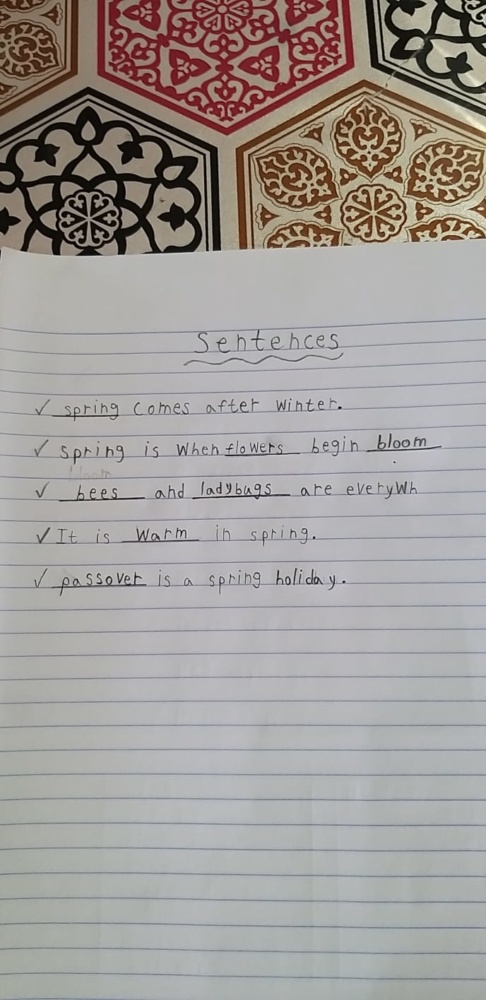 Sentences
✓ spring comes after winter.
✓ spring is when flowers begin bloom
bloom
✓ bees and ladybugs are everywh
✓ It is warm in spring.
✓ passover is a spring holiday.